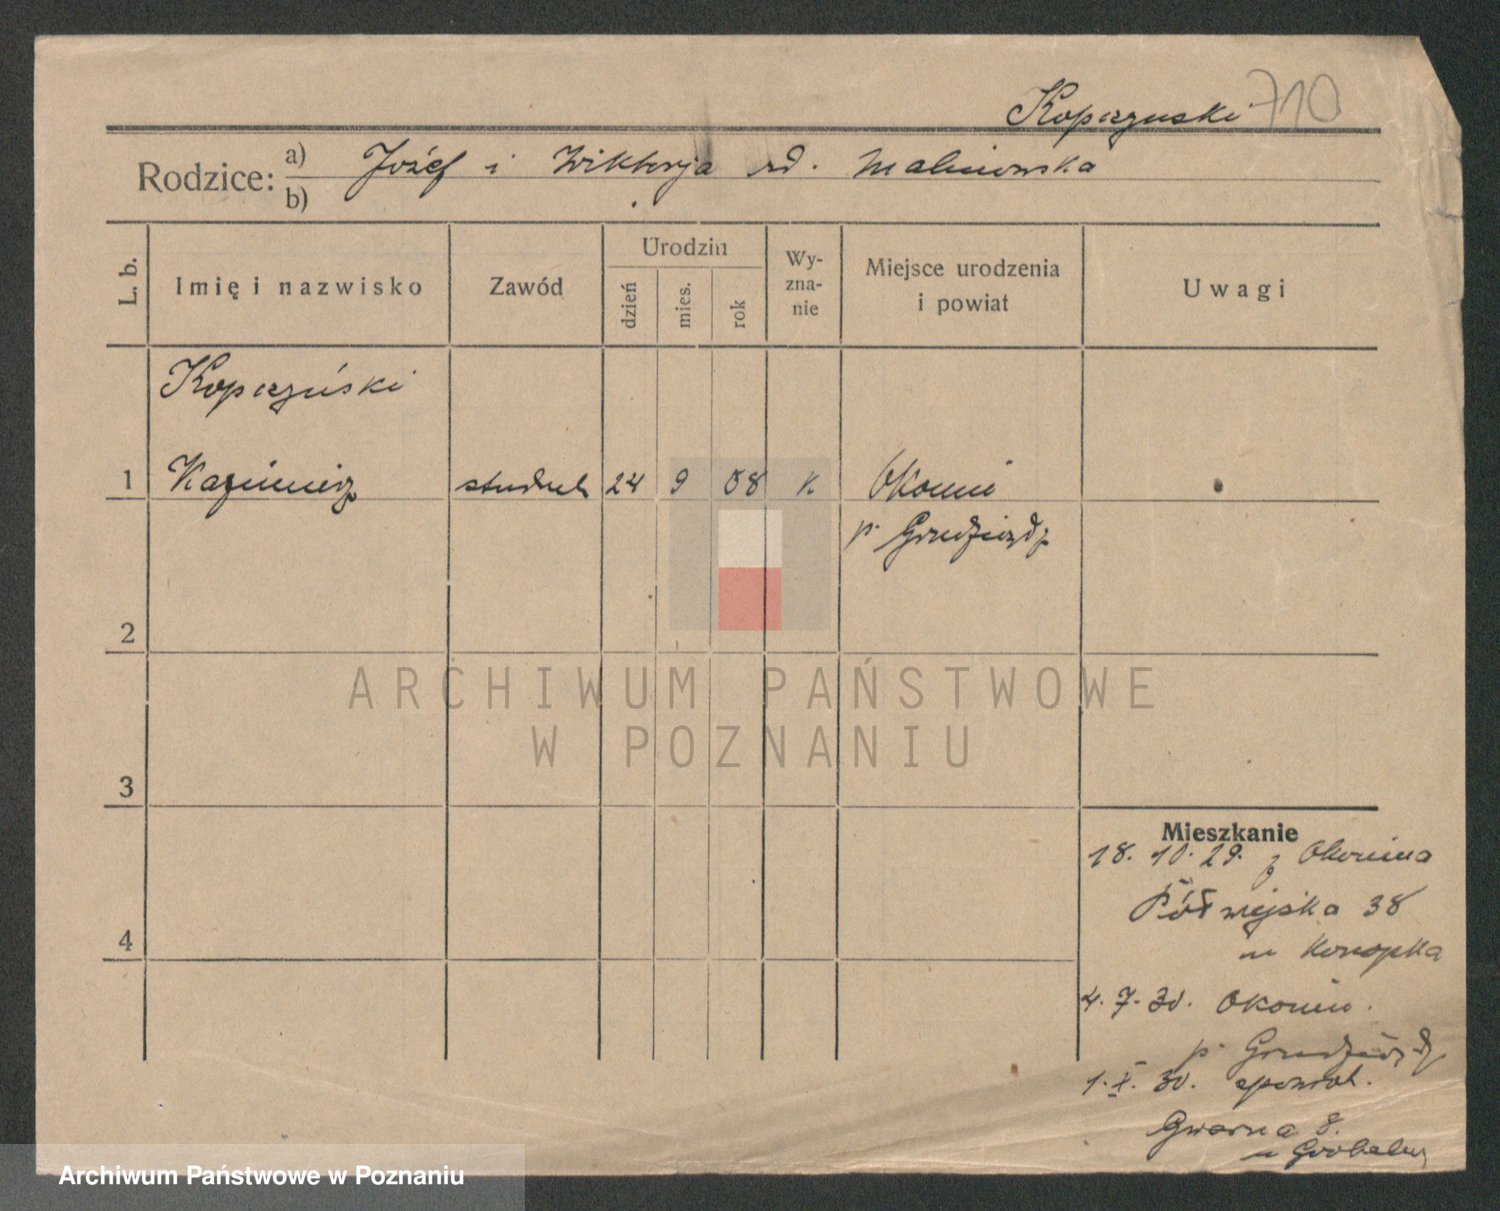 Kopczyński 710
Rodzice: a) Józef i Wiktorja rd. Malinowska
b)
L. b.
Imię i nazwisko
Zawód
Urodzin
dzień
mies.
rok
Wy-
zna-
nie
Miejsce urodzenia
i powiat
Uwagi
Kopczyński
1 Kazimierz student 24 9 08 k. Okonin
p. Grudziądz
2
3
4
Mieszkanie
18. 10. 29. z Okonina
Półwiejska 38
u Konopka
4. 7. 30. Okonin.
p. Grudziądz
1. X. 30. spowrot.
Gwarna 8.
u
ARCHIWUM PAŃSTWOWE
W POZNANIU
Archiwum Państwowe w Poznaniu